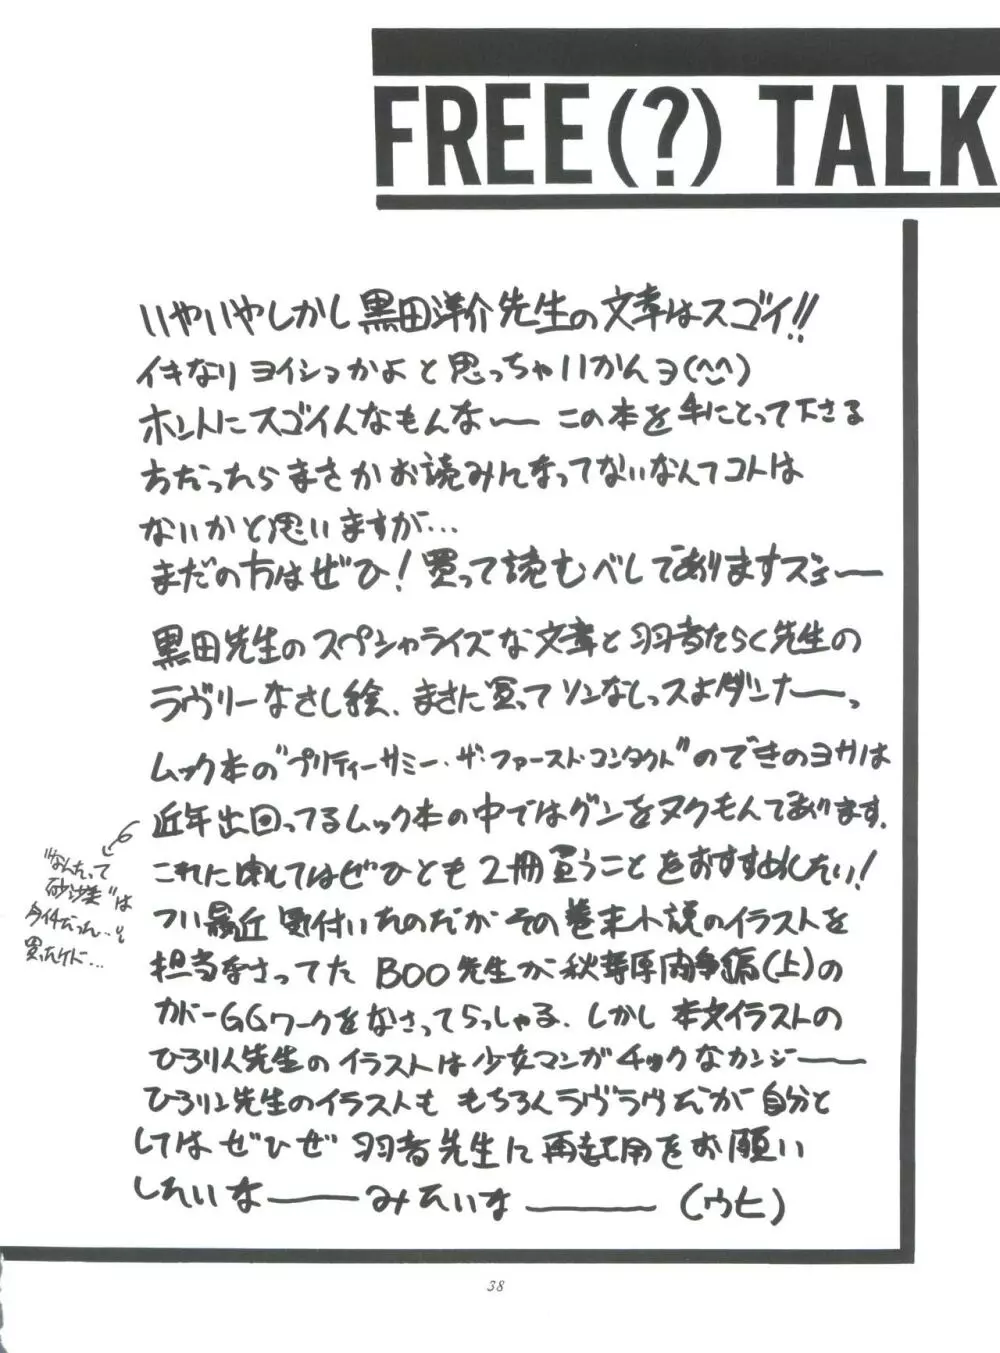 FREE(?) TALK
いやいやしかし黒田洋介先生の文章はスゴイ!!
イキなりヨイショかよと思っちゃいかんヨ(^^)
ホントにスゴイんなもんなー この本を手にとって下さる
方だったらまさかお読みんなってないなんてコトは
ないかと思いますが…
まだの方はぜひ!買って読むべしでありますズェー
黒田先生のスペシャライズな文章と羽者たらく先生の
ラヴリーなさし絵、まさに買ってソンなしっスよダンナーっ
ムック本の"プリティーサミー・ザ・ファースト・コンタクト"のできのヨサは
近年出回ってるムック本の中ではグンをヌクもんであります.
これに関してはぜひとも2冊買うことをおすすめしたい!
つい最近買付いたのだがその巻末小説のイラストを
担当なさってた BOO先生が秋葉原内争編(上)の
カバーCGワークをなさってらっしゃる. しかし本文イラストの
ひろりん先生のイラストは少女マンガチックなカンジー
ひろリン先生のイラストももちろんラヴラヴだが自分と
してはぜひぜ羽者先生に再起用をお願い
したいなーーみたいなーー (ウヒ)
"なんたって
砂沙美"は
買ったケド…
38